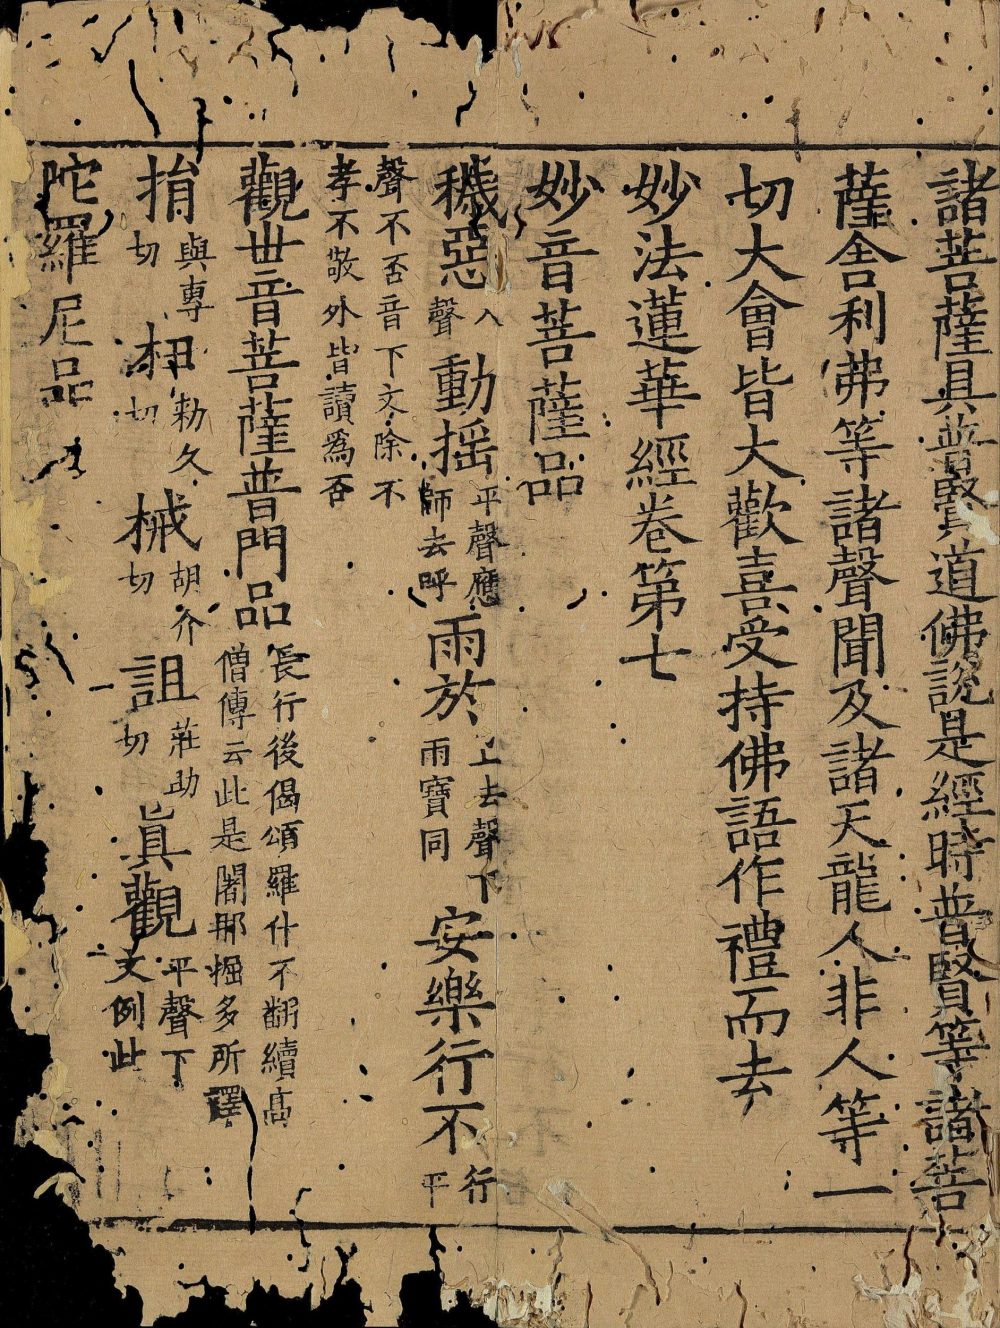 諸菩薩具普賢道佛說是經時普賢等諸菩
薩舍利弗等諸聲聞及諸天龍人非人等一
切大會皆大歡喜受持佛語作禮而去
妙法蓮華經卷第七
妙音菩薩品
穢惡入聲動搖平聲應師去呼雨於上去聲下雨寶同安樂行不行平
聲不否音下文除不
孝不敬外皆讀爲否
觀世音菩薩普門品長行後偈頌羅什不翻續高僧傳云此是闍那掘多所譯
捐與專切杻勑久切械胡介切詛莊助切眞觀平聲下文例此
陀羅尼品